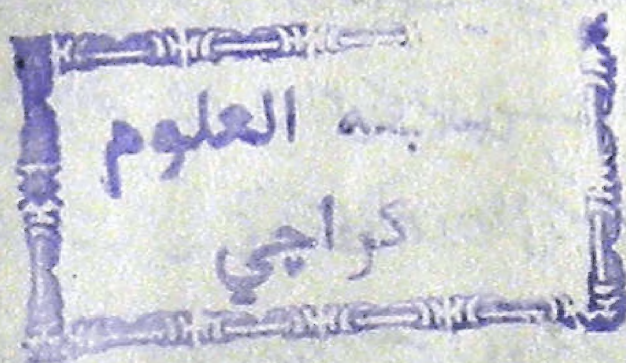 العلوم
كراچي